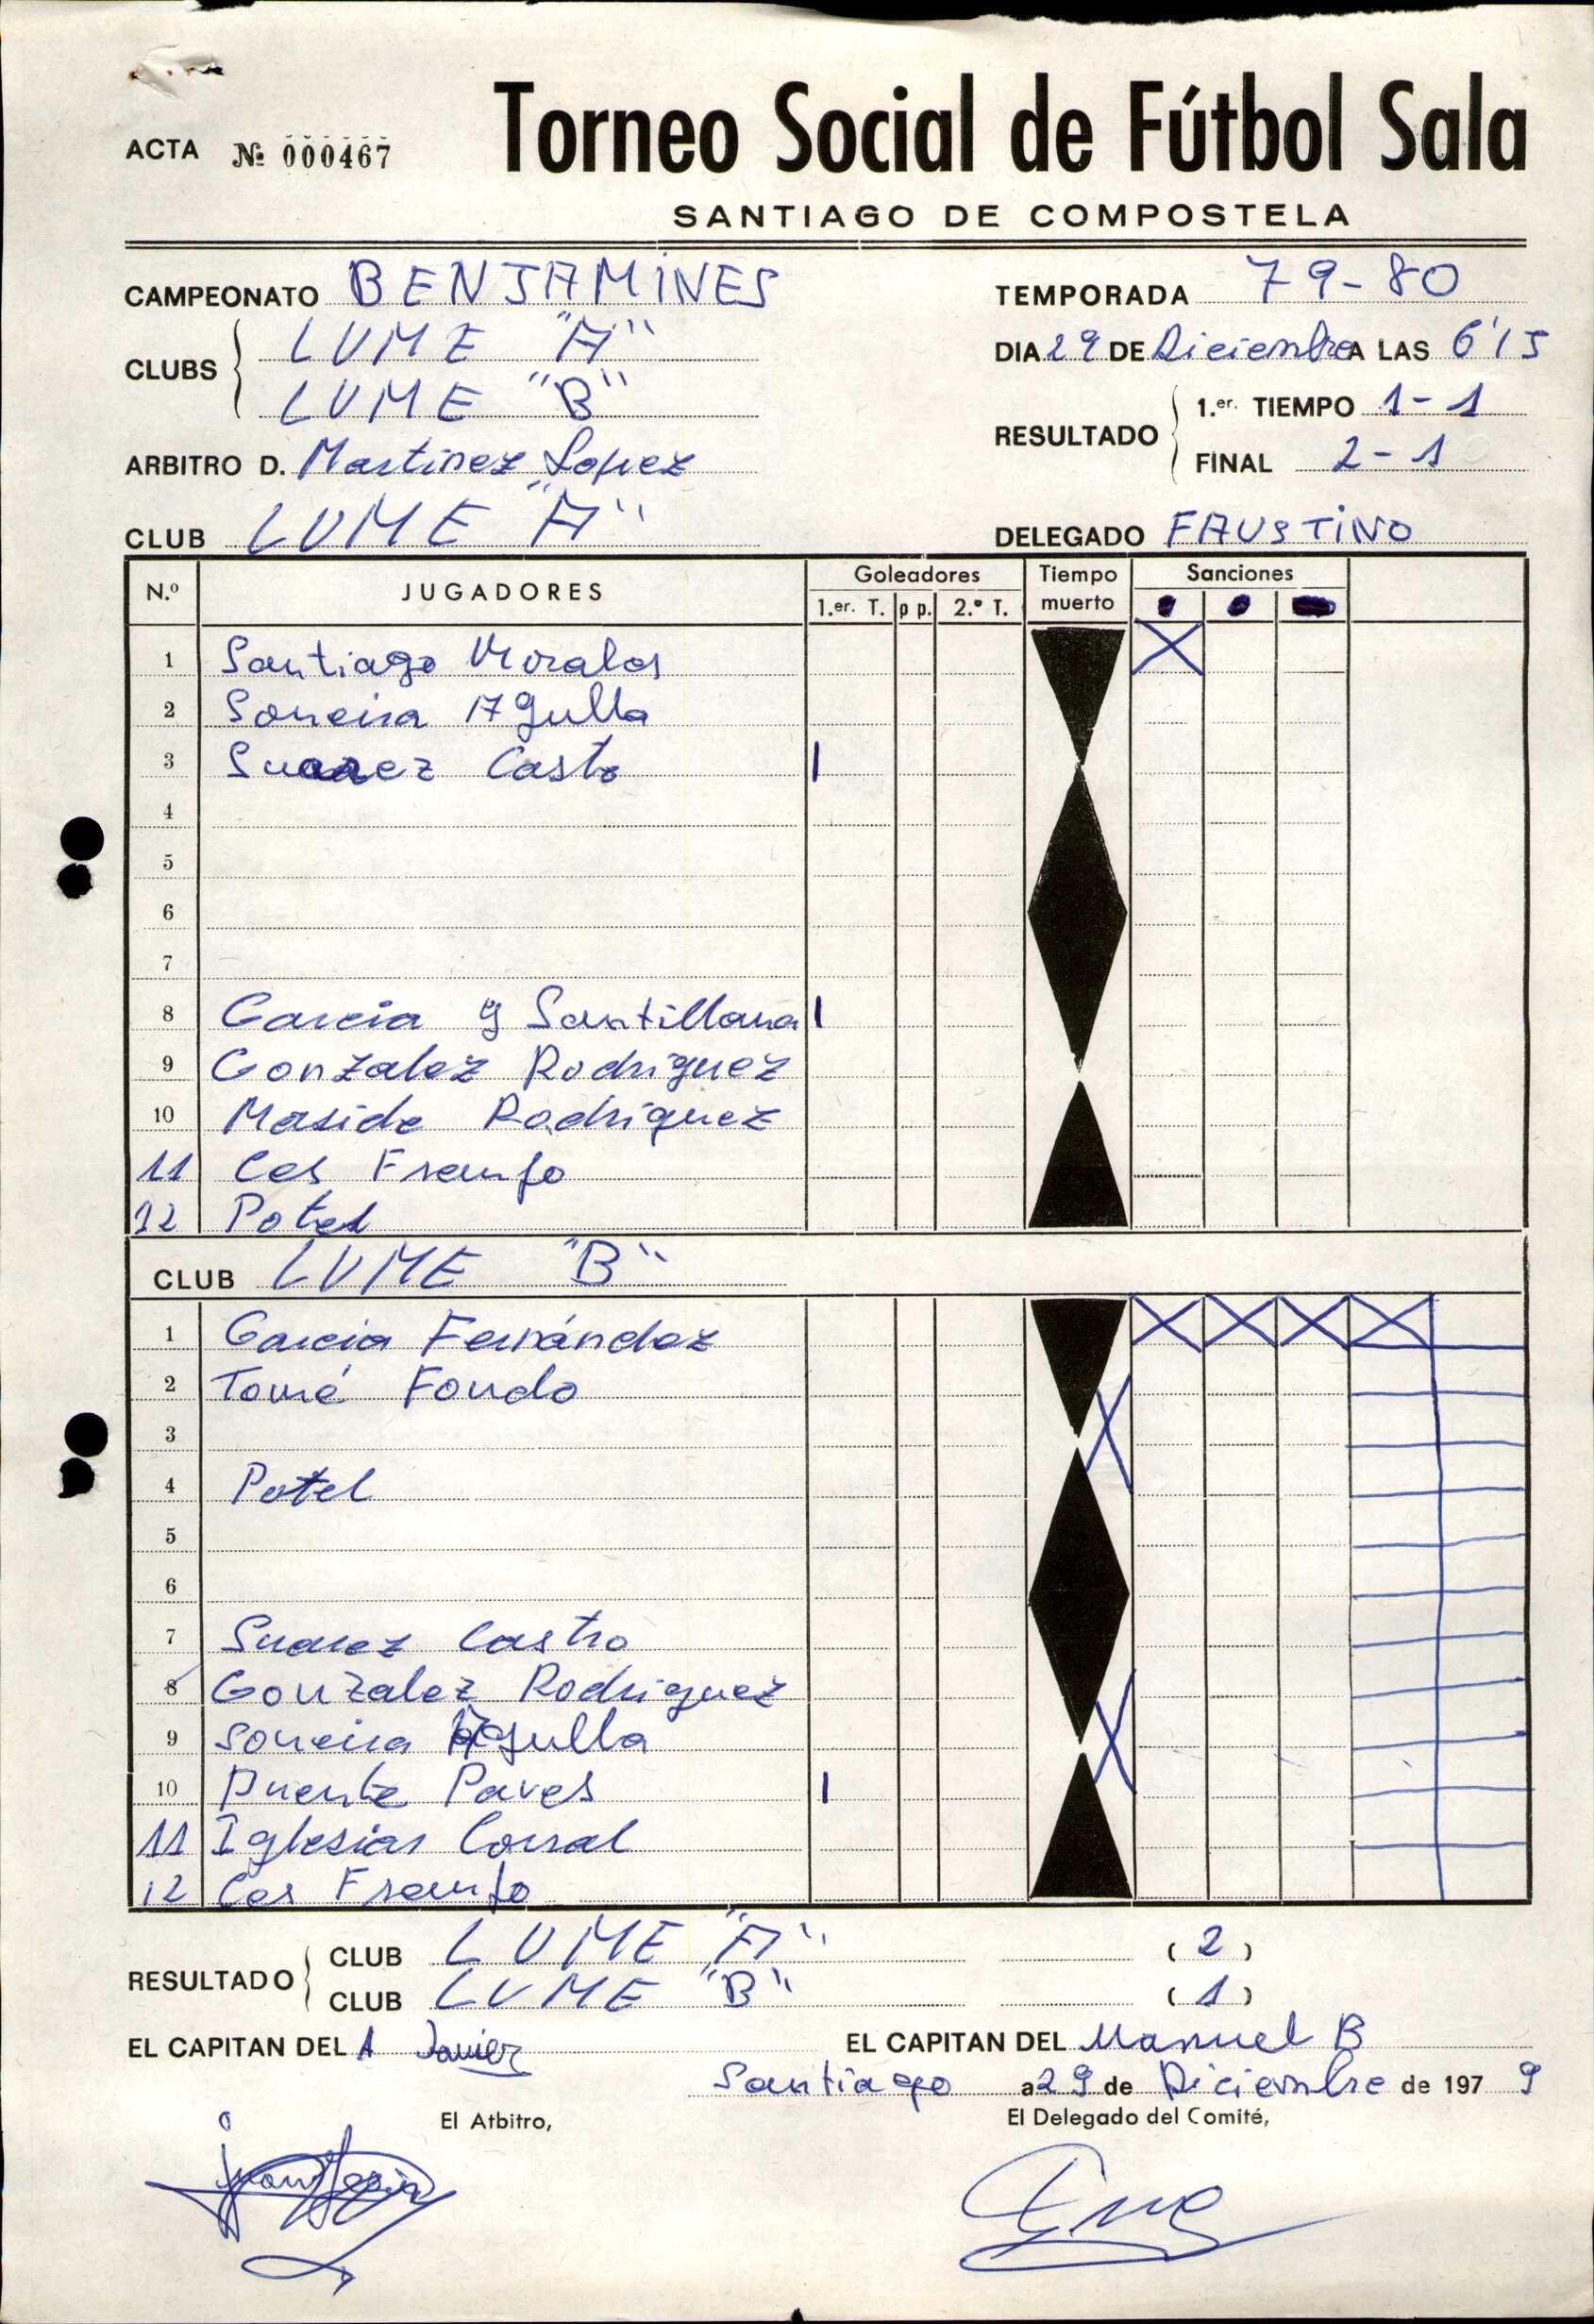 Torneo Social de Fútbol Sala
ACTA № 000467
SANTIAGO DE COMPOSTELA
CAMPEONATO BENJAMINES
TEMPORADA 79-80
CLUBS LUME "A"
LUME "B"
DIA 29 DE Diciembre A LAS 6'15
RESULTADO 1.er. TIEMPO 1-1
FINAL 2-1
ARBITRO D. Martinez Lopez
CLUB LUME "A"
DELEGADO FAUSTINO
N.º JUGADORES Goleadores Tiempo muerto Sanciones
1.er. T. p p. 2.º T.
1 Santiago Morales
2 Soneira Agulla
3 Suarez Casto
4
5
6
7
8 Garcia y Santillana
9 Gonzalez Rodriguez
10 Maside Rodriguez
11 Ces
12 Potel
CLUB LUME "B"
1 Garcia Fernández
2 Tomé
3
4 Potel
5
6
7 Suarez Castro
8 Gonzalez Rodriguez
9 Soneira Agulla
10 Puente
11 Iglesias Corral
12 Ces
RESULTADO CLUB LUME "A" (2)
CLUB LUME "B" (1)
EL CAPITAN DEL A Javier
EL CAPITAN DEL Manuel B
Santiago a 29 de Diciembre de 1979
El Atbitro,
El Delegado del Comité,